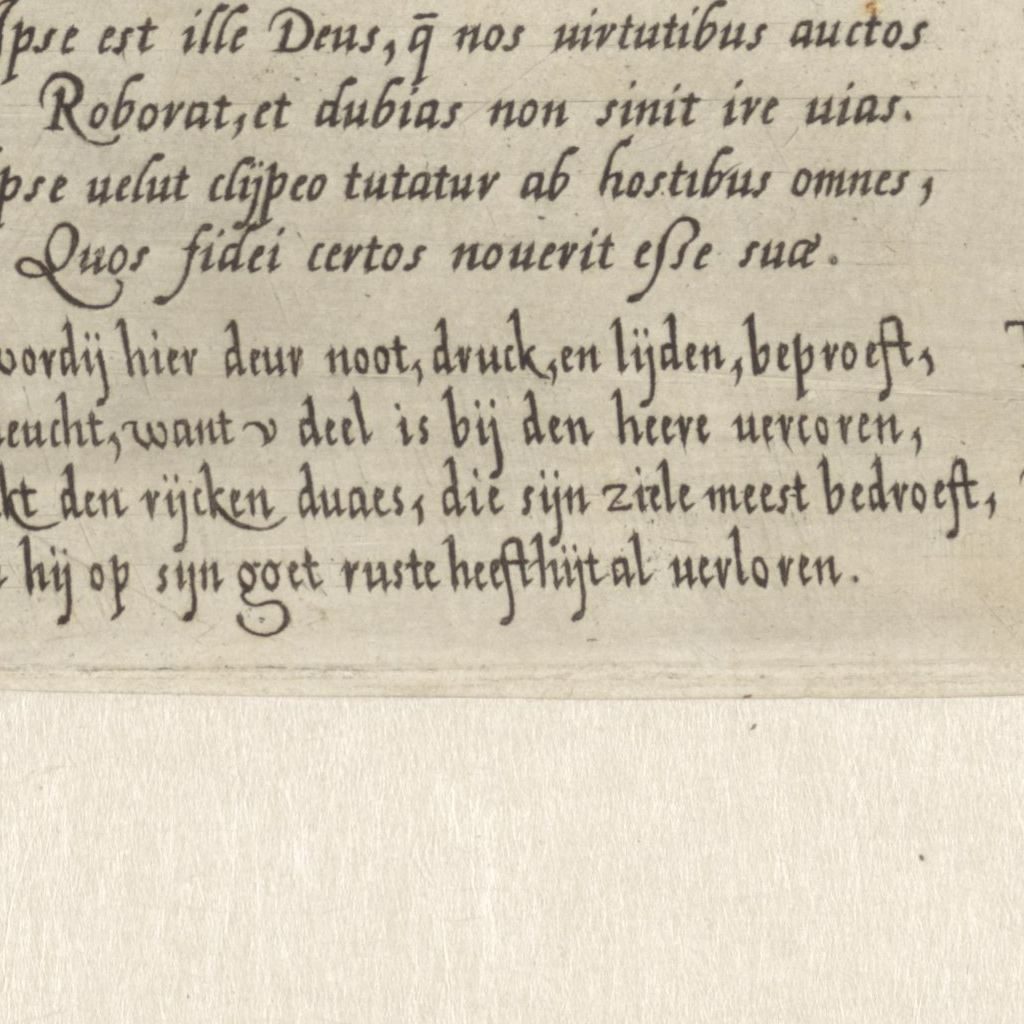 Ipse est ille Deus, q̄ nos uirtutibus auctos
Roborat, et dubias non sinit ire uias.
pse uelut clÿpeo tutatur ab hostibus omnes,
Quos fidei certos nouerit eſse suæ.
wordij hier deur noot, druck, en lijden, beproeft,
eucht, want v deel is bij den heere uercoren,
kt den rijcken duaes, die sijn ziele meest bedroeft,
hij op sijn goet ruste heeft hijt al uerloren.